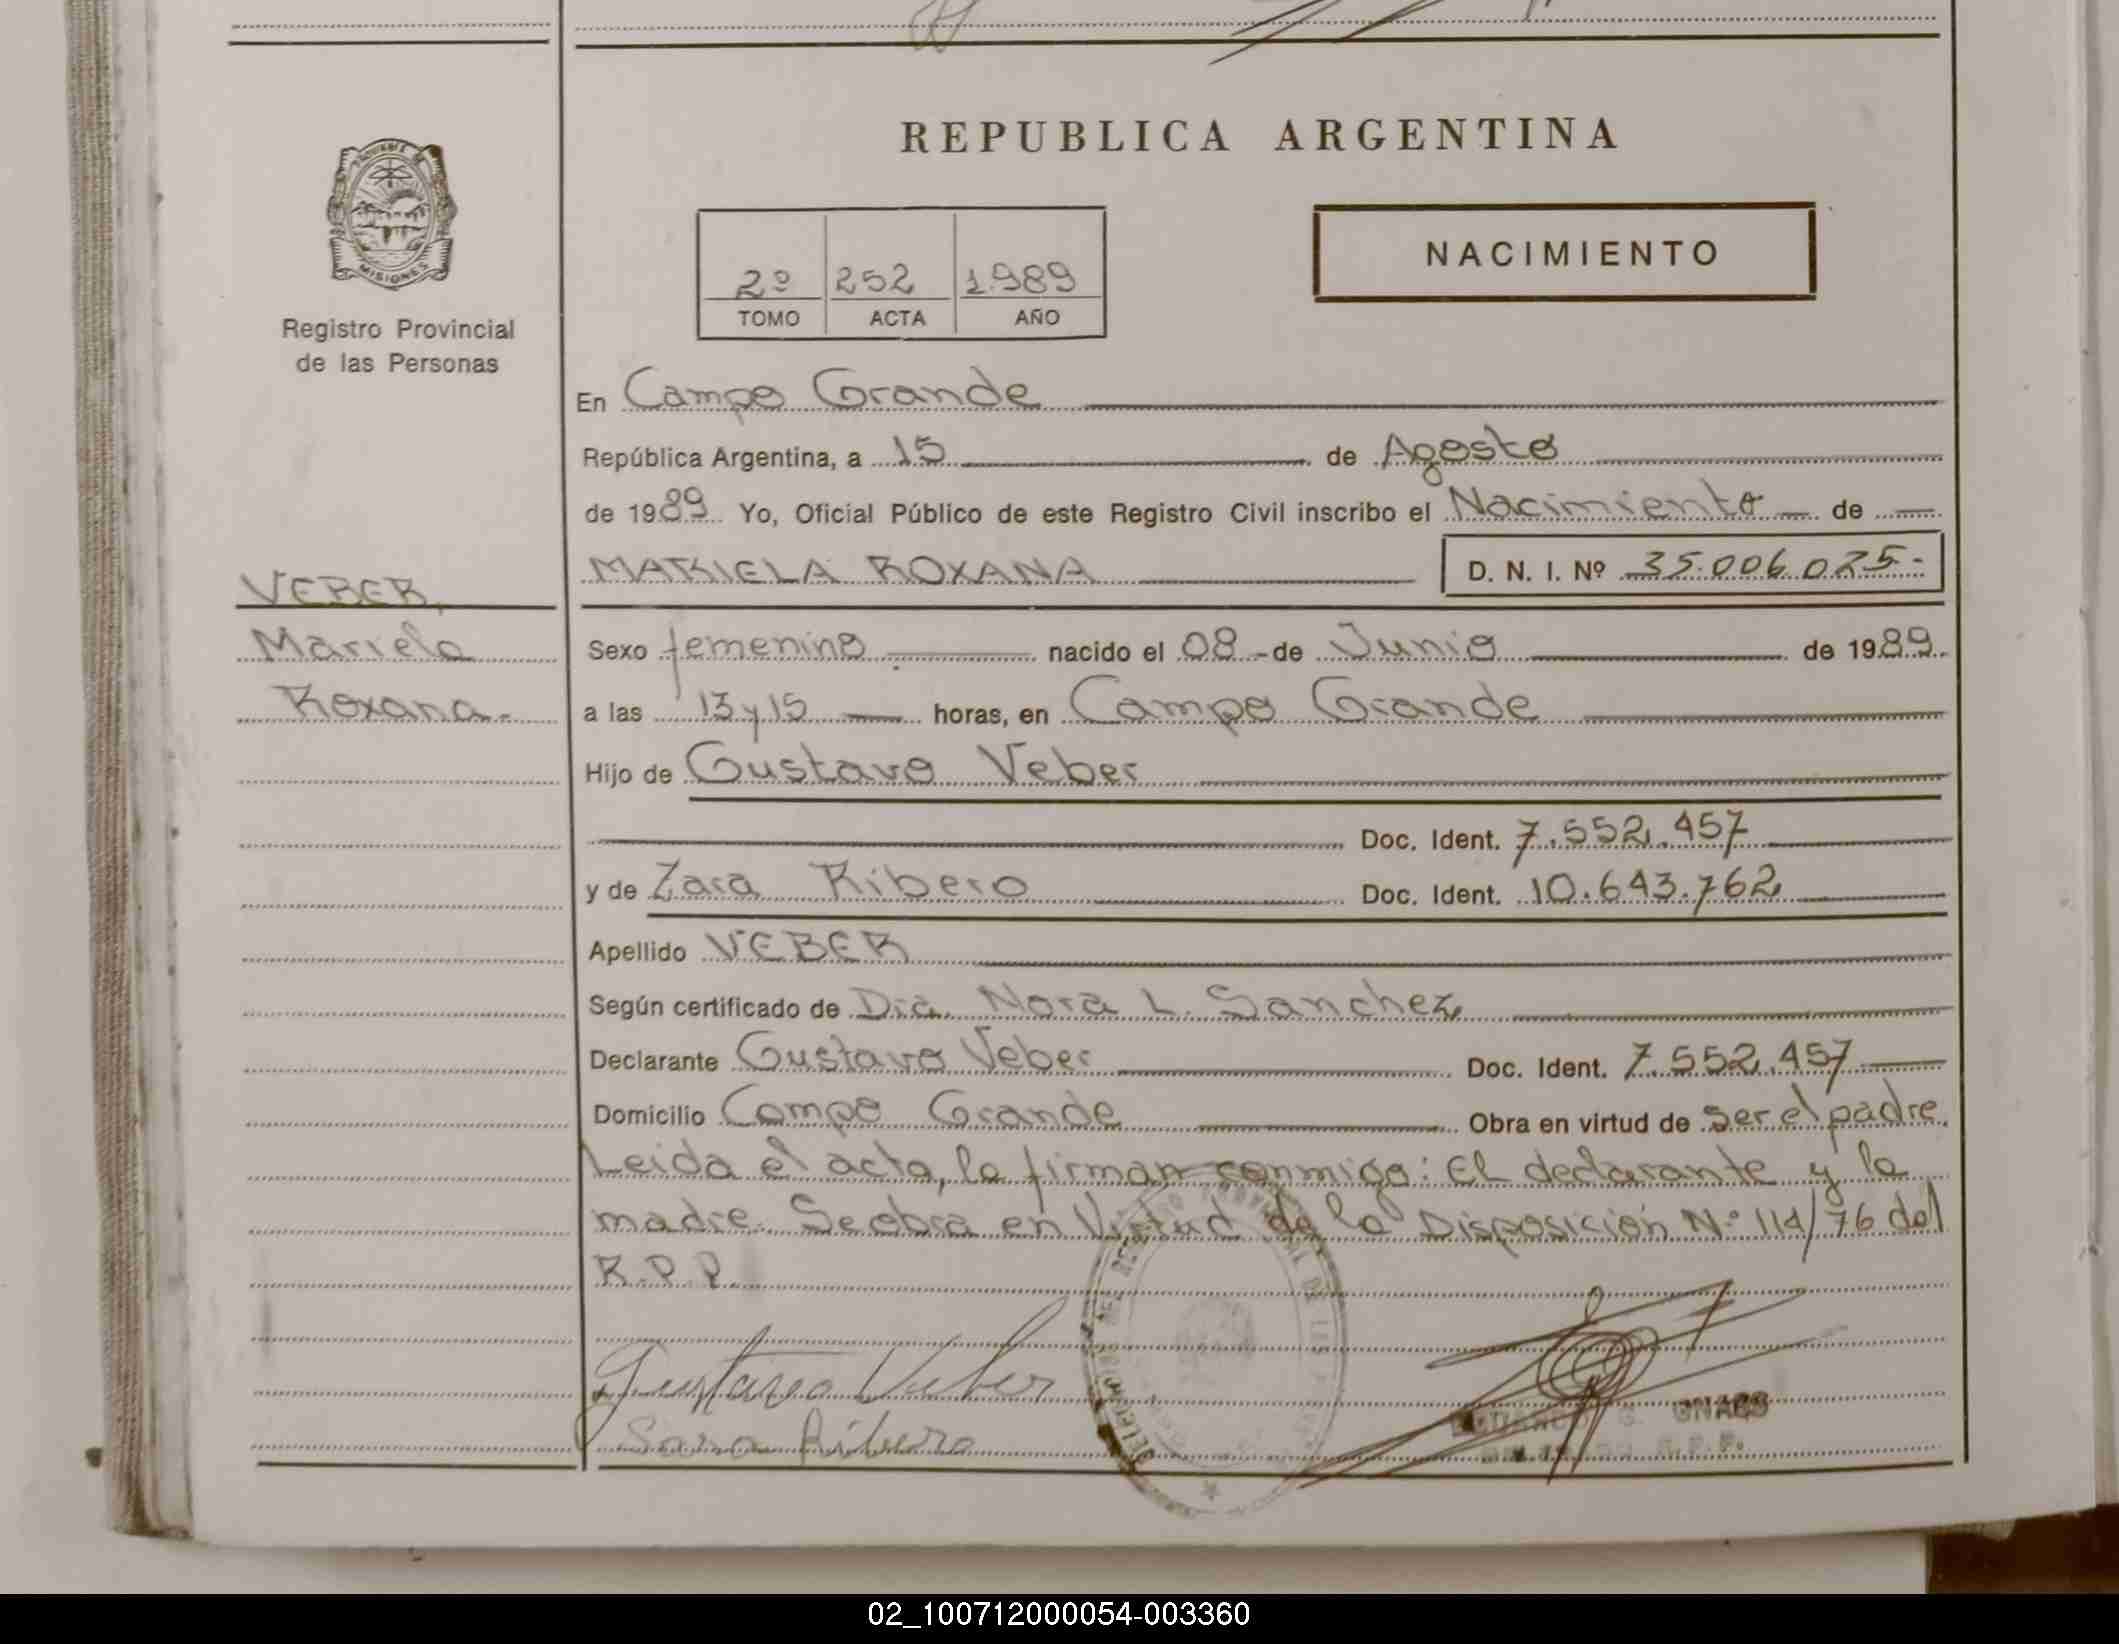 REPUBLICA ARGENTINA
PROVINCIA DE
MISIONES
Registro Provincial
de las Personas
NACIMIENTO
2º 252 1989
TOMO ACTA AÑO
En Campo Grande
República Argentina, a 15 de Agosto
de 1989 Yo, Oficial Público de este Registro Civil inscribo el Nacimiento de
MARIELA ROXANA D. N. I. Nº 35.006.025-
VEBER,
Mariela
Roxana.-
Sexo femenino nacido el 08 - de Junio de 1989.
a las 13 y 15 horas, en Campo Grande
Hijo de Gustavo Veber
Doc. Ident. 7.552.457
y de Zara Ribero Doc. Ident. 10.643.762
Apellido VEBER
Según certificado de Dra. Nora L. Sanchez
Declarante Gustavo Veber Doc. Ident. 7.552.457
Domicilio Campo Grande Obra en virtud de ser el padre.
Leida el acta, la firman conmigo: El declarante y la
madre. Se obra en Virtud de la Disposición Nº 114/76 del
R.P.P.
Gustavo Veber
Sara Ribero
02_100712000054-003360